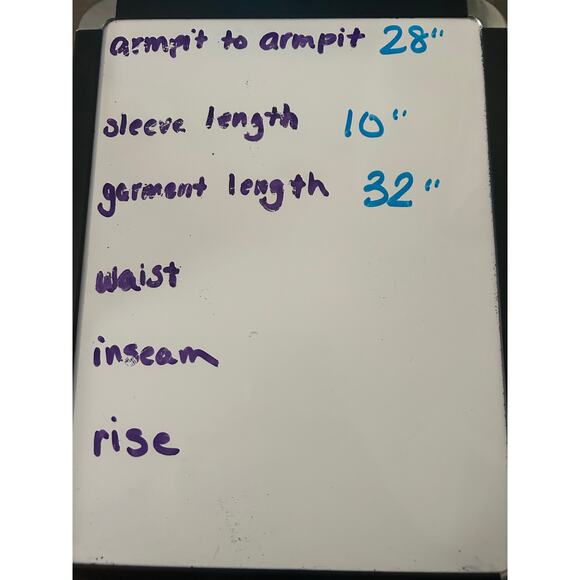 armpit to armpit 28"
sleeve length 10"
garment length 32"
waist
inseam
rise